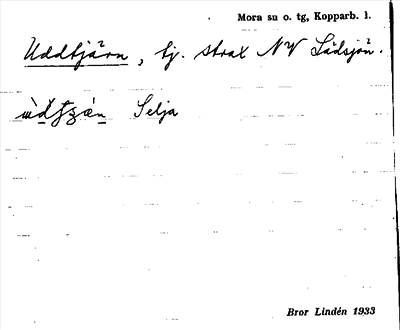 Mora sn o. tg, Kopparb. l.
Uddtjärn, tj. strax NV Lådsjön.
Selja
Bror Lindén 1933